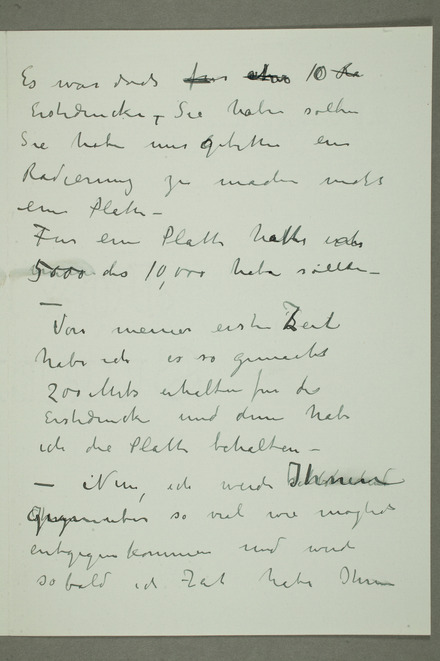 Es war doch 10
Erstdrucke, Sie haben sollen
Sie haben mir gebeten eine
Radierung zu machen nicht
eine Platte –
Für eine Platte hatte ich
5000 das 10,000 haben sollen –
–
Von meiner ersten Zeit
habe ich es so gemacht
200 Mk erhalten für die
Erstdrucke und dann habe
ich die Platte behalten –
– Nun, ich werde Ihnen
so viel wie möglich
entgegenkommen und werde
sobald ich Zeit habe Ihnen